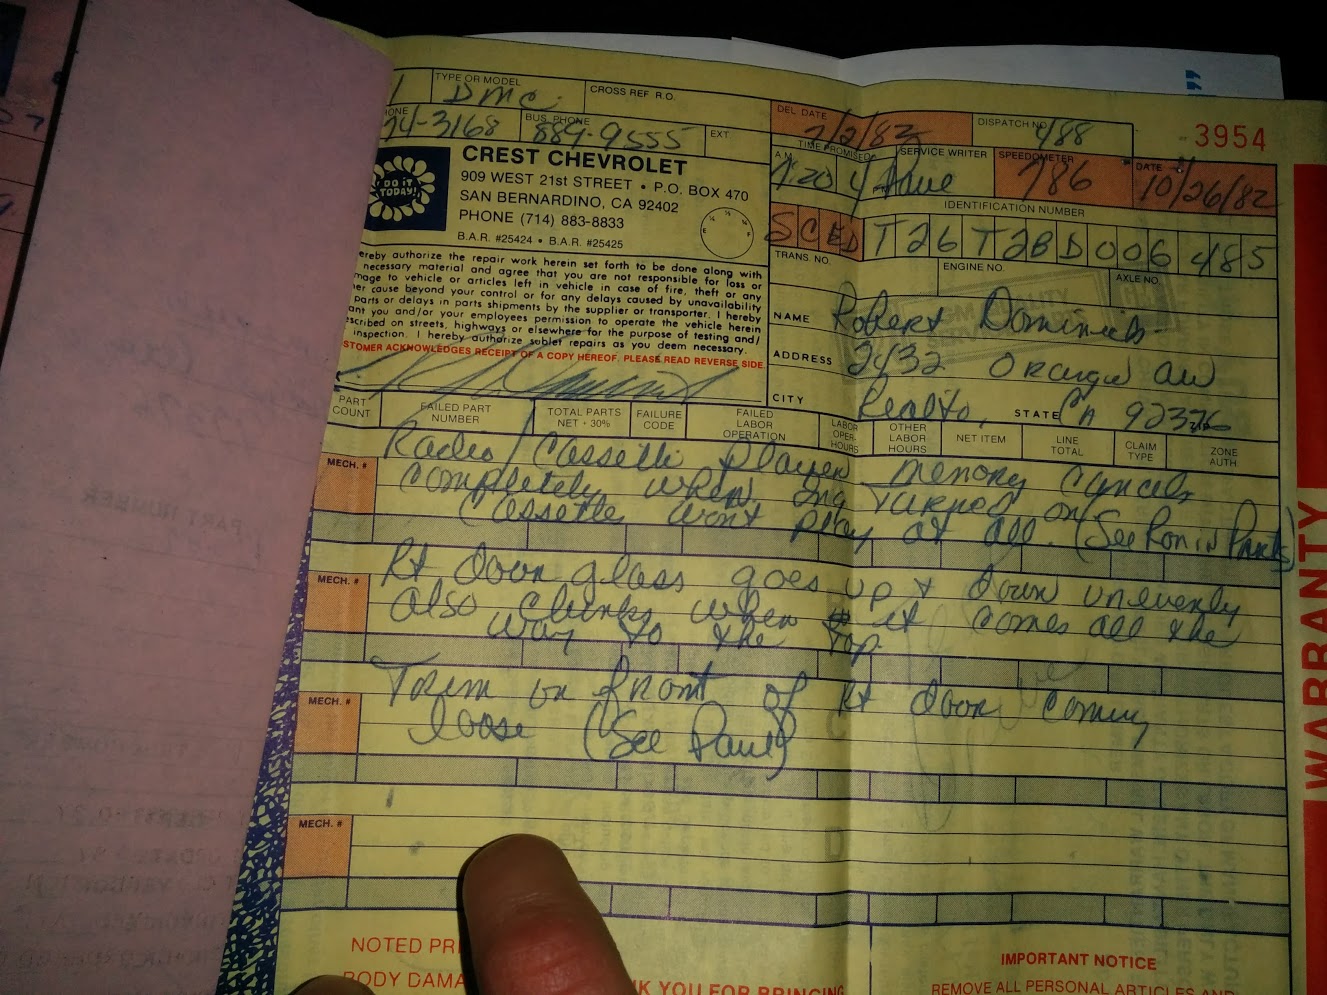 TYPE OR MODEL
DMC
CROSS REF R.O.
DEL. DATE
7/2/82
DISPATCH NO.
488
3954
BUS. PHONE
74-3168
889-9555
EXT.
TIME PROMISED
A.M.
7:20
SERVICE WRITER
Dave
SPEEDOMETER
786
DATE
10/26/82
DO IT TODAY!
CREST CHEVROLET
909 WEST 21st STREET • P.O. BOX 470
SAN BERNARDINO, CA 92402
PHONE (714) 883-8833
B.A.R. #25424 • B.A.R. #25425
IDENTIFICATION NUMBER
SCED T26 T2BD 006 485
TRANS. NO.
ENGINE NO.
AXLE NO.
ereby authorize the repair work herein set forth to be done along with
necessary material and agree that you are not responsible for loss or
mage to vehicle or articles left in vehicle in case of fire, theft or any
er cause beyond your control or for any delays caused by unavailability
parts or delays in parts shipments by the supplier or transporter. I hereby
ant you and/or your employees permission to operate the vehicle herein
scribed on streets, highways or elsewhere for the purpose of testing and/
inspection. I hereby authorize sublet repairs as you deem necessary.
STOMER ACKNOWLEDGES RECEIPT OF A COPY HEREOF. PLEASE READ REVERSE SIDE
NAME
Robert
ADDRESS
2432 Orange av
CITY
Realto,
STATE
CA 92376
PART COUNT
FAILED PART NUMBER
TOTAL PARTS NET + 30%
FAILURE CODE
FAILED LABOR OPERATION
LABOR OPER. HOURS
OTHER LABOR HOURS
NET ITEM
LINE TOTAL
CLAIM TYPE
ZONE AUTH
Radio/Cassette Player memory cancels
MECH. #
completely when ing turned on
Cassette wont play at all. (See Ron in Parts)
MECH. #
Rt door glass goes up & down unevenly
also clunks when it comes all the
way to the top.
MECH. #
Trim on front of Rt door coming
loose (See Paul)
MECH. #
WARRANTY
NOTED PR
BODY DAMA
K YOU FOR BRINGING
IMPORTANT NOTICE
REMOVE ALL PERSONAL ARTICLES AND